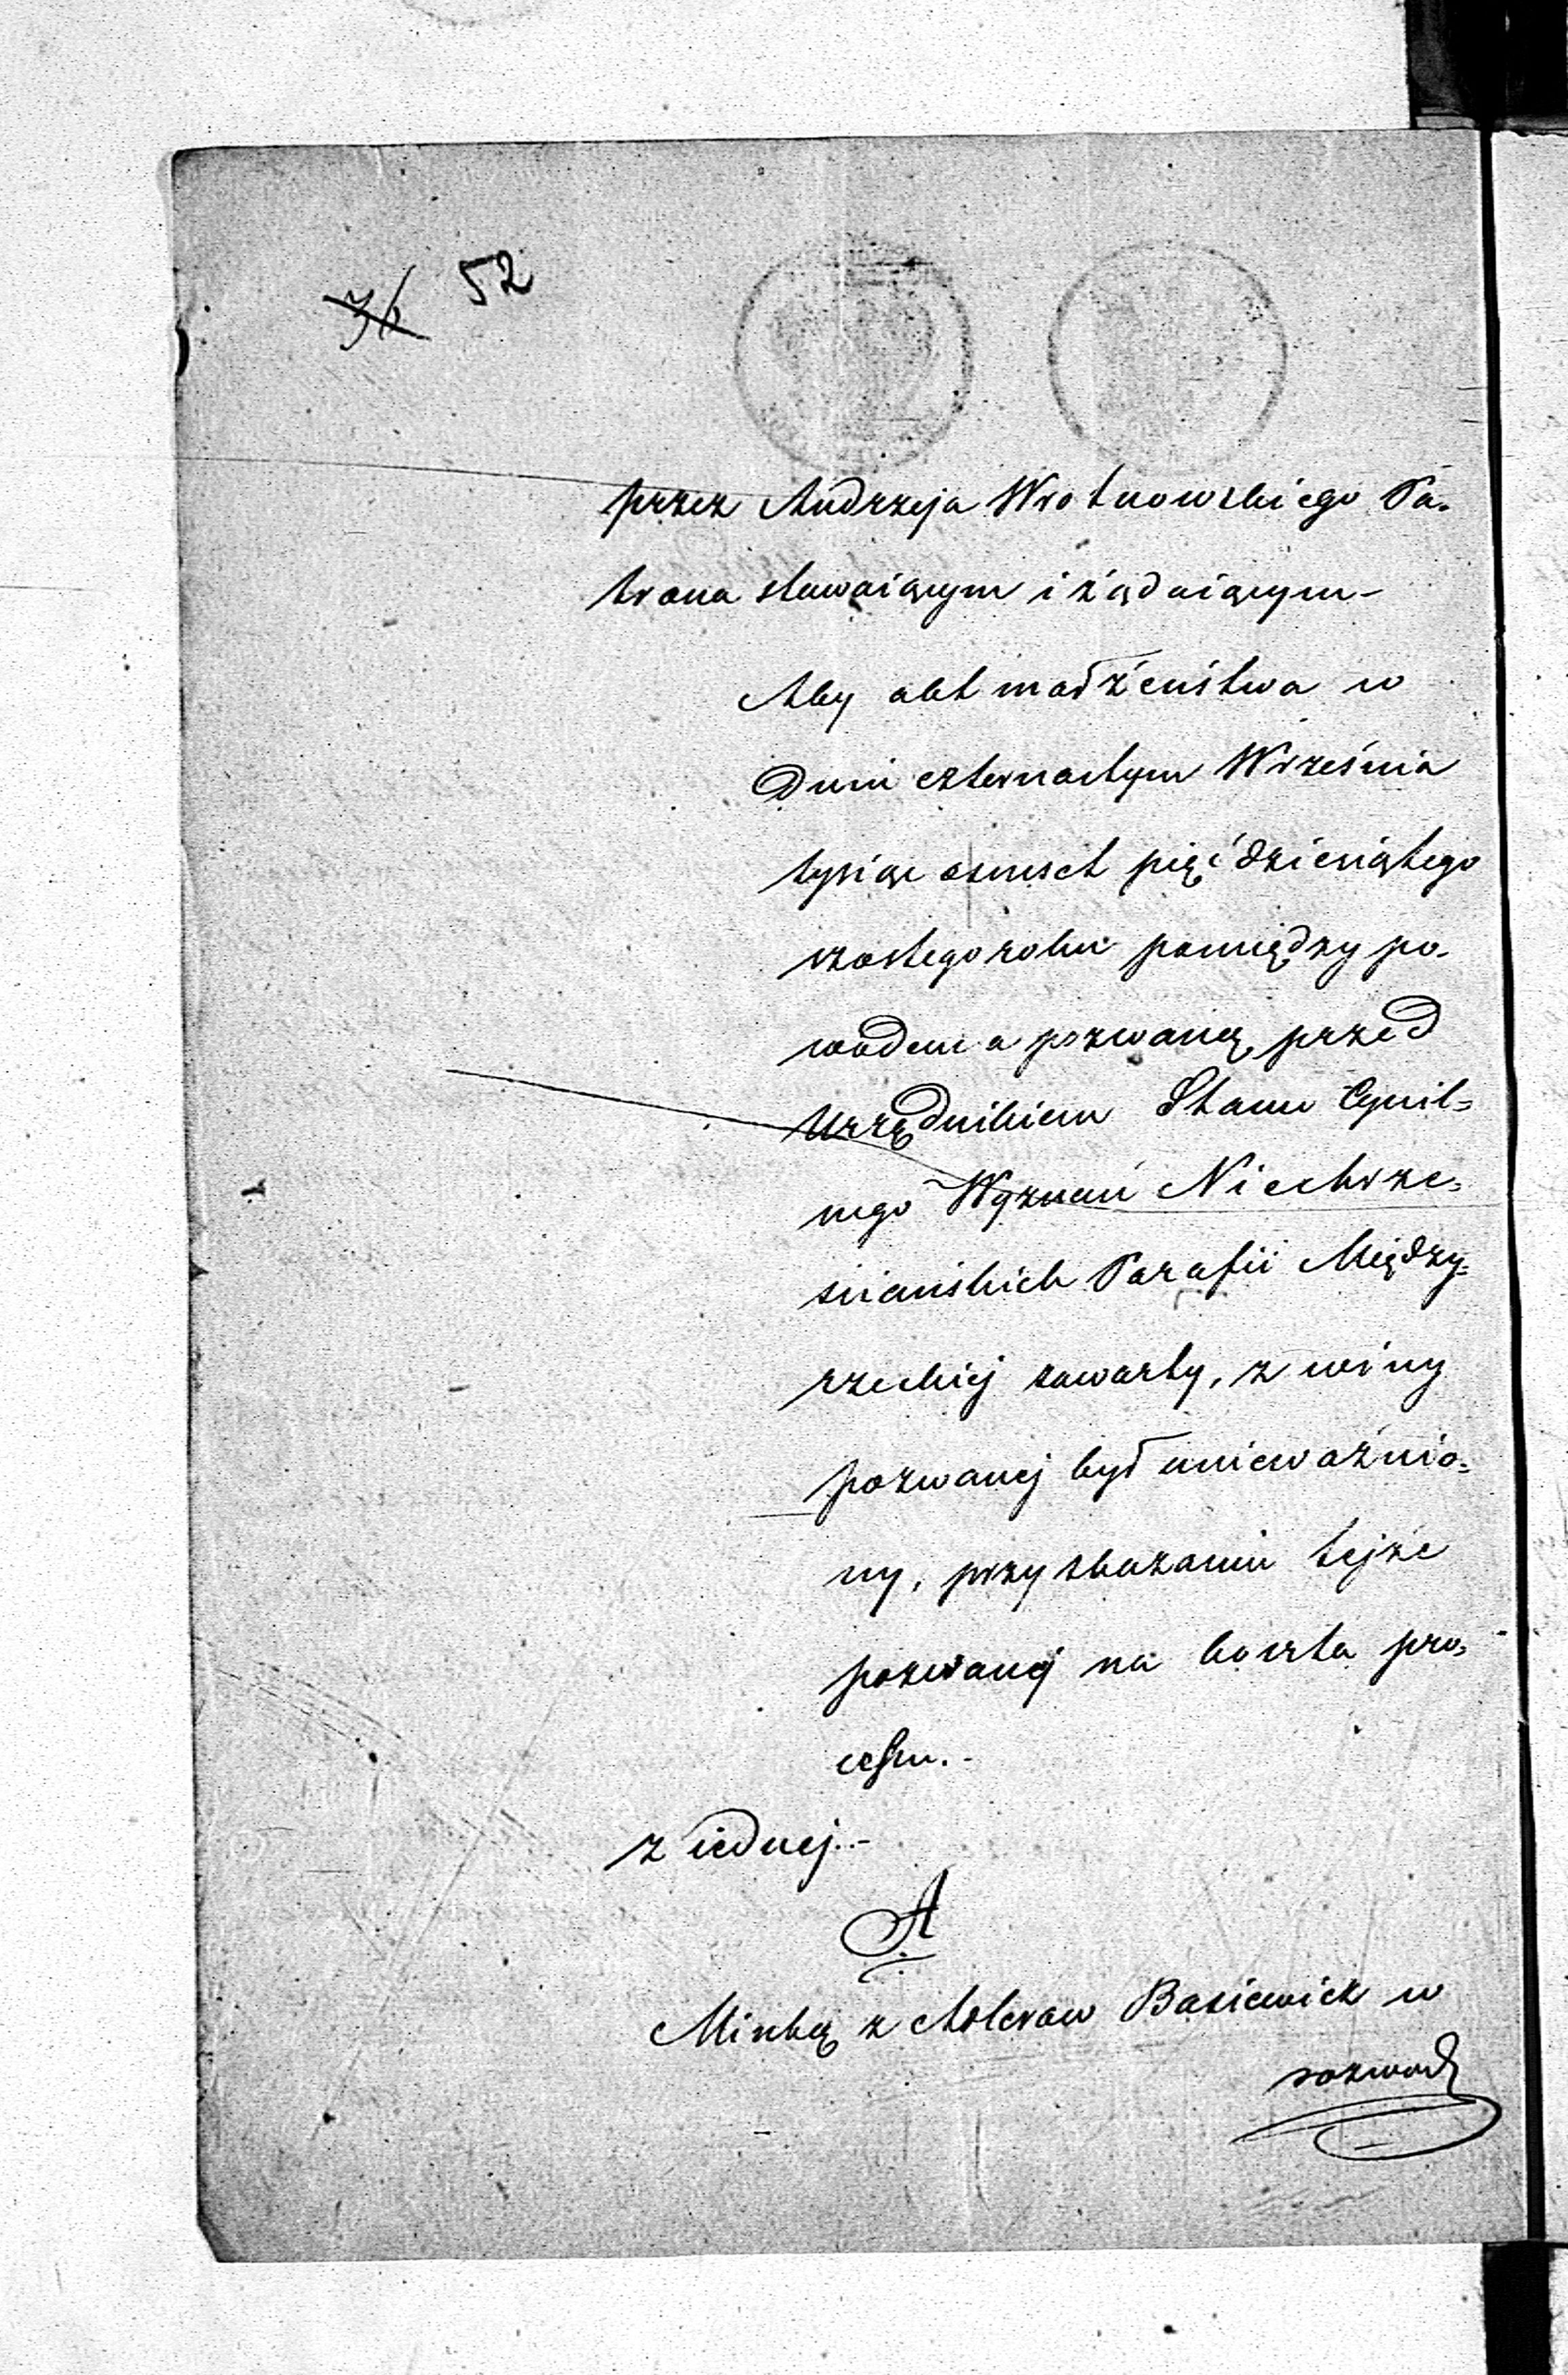 36 52
przez Andrzeja Wrotnowskiego Pa-
trona stawaiącym i żądaiącym -
Aby akt małżeństwa w
Dniu czternastym Września
tysiąc osmset pięćdziesiątego
szóstego roku pomiędzy po-
wodem a pozwaną przed
Urzędnikiem Stanu Cywil=
nego Wyznań Niechrze=
ściańskich Parafii Między=
rzeckiej zawarty, z winy
pozwanej był unieważnio=
ny, przy skazaniu tejże
pozwanej na koszta pro=
cessu. -
z iedney. -
A
Minką z Askeraw Basiewicz w
rozwod